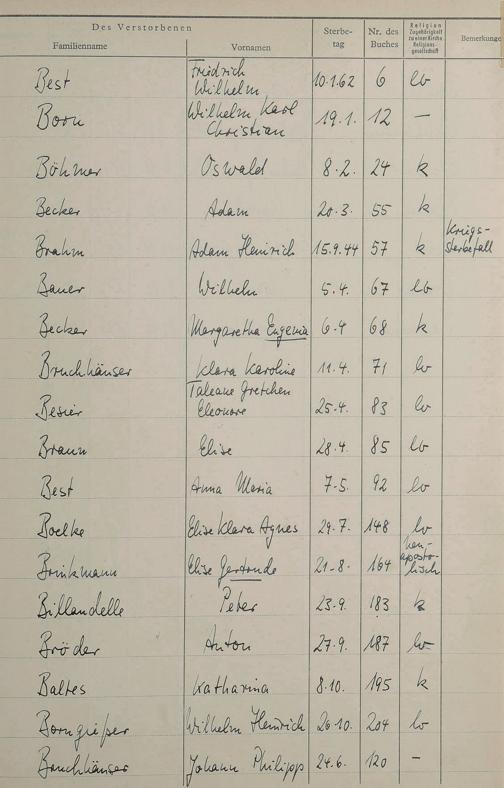 Des Verstorbenen
Familienname
Vornamen
Sterbe-
tag
Nr. des
Buches
Religion
Zugehörigkeit
zu einer Kirche
Religions-
gesellschaft
Bemerkunge
Best Friedrich Wilhelm 10.1.62 6 lv
Born Wilhelm Karl Christian 19.1. 12 —
Böhmer Oswald 8.2. 24 k
Becker Adam 20.3. 55 k
Brahm Adam Heinrich 15.9.44 57 k Kriegs-
sterbefall
Bauer Wilhelm 5.4. 67 lv
Becker Margaretha Eugenia 6.4 68 k
Bruchhäuser Klara Karoline 11.4. 71 lv
Besier Taleane Gretchen Eleonore 25.4. 83 lv
Braun Elise 28.4. 85 lv
Best Anna Maria 7.5. 92 lv
Boelke Elise Klara Agnes 29.7. 148 lv
Brinkmann Elise Gertrude 21.8. 164 neu-
aposto-
lisch
Billandelle Peter 23.9. 183 k
Bröder Anton 27.9. 187 lv
Baltes Katharina 8.10. 195 k
Borngießer Wilhelm Heinrich 20.10. 204 lv
Bruchhäuser Johann Philipp 24.6. 120 —